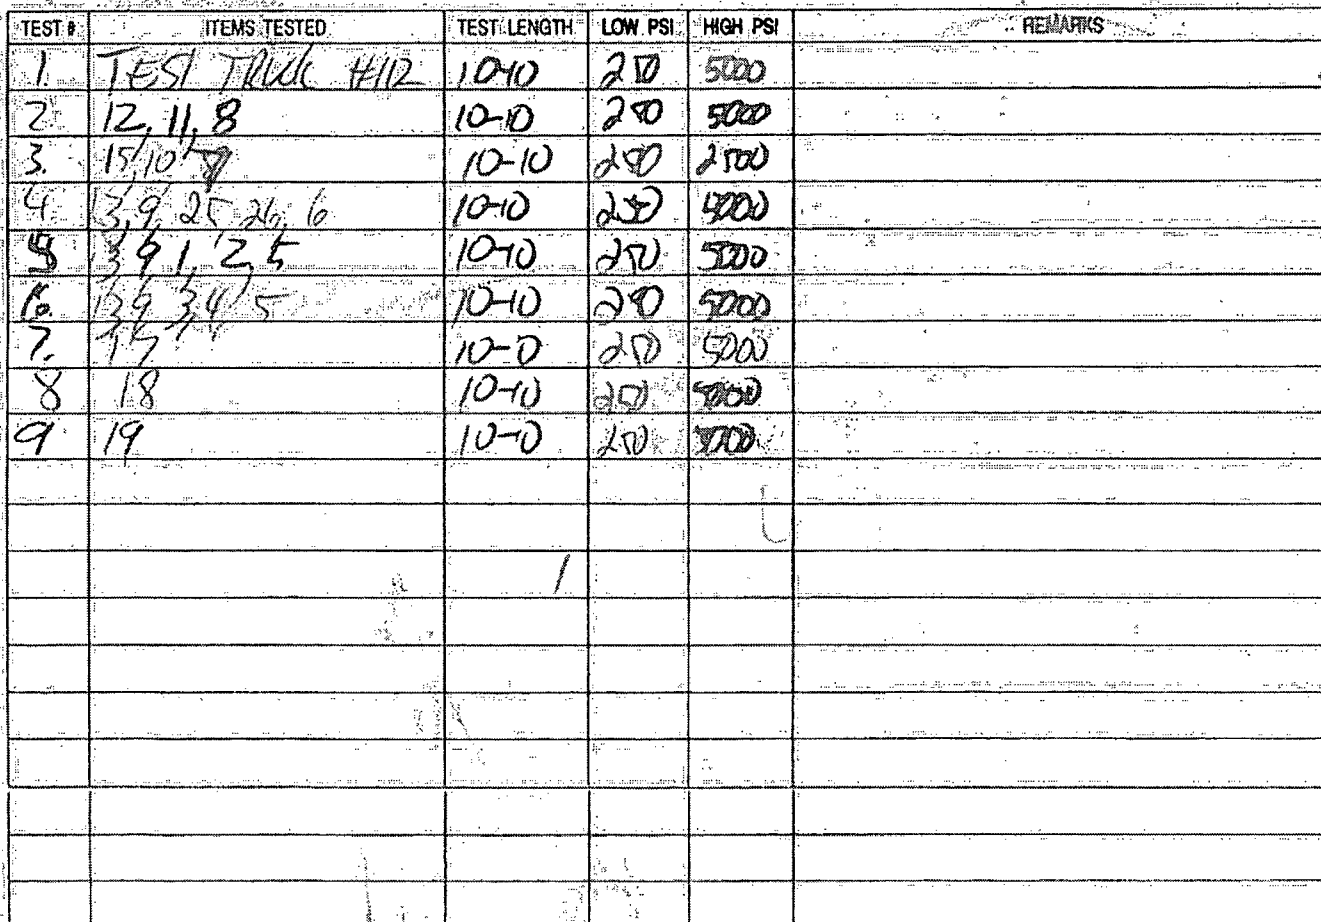 TEST # ITEMS TESTED TEST LENGTH LOW PSI HIGH PSI REMARKS
1. TEST TRUCK #112 10-10 250 5000
2. 12, 11, 8 10-10 250 5000
3. 15, 10, 10-10 250 2500
4. 13, 9, 25, 26, 6 10-10 250 5000
5 13, 9, 1, 2, 5 10-10 250 5000
6. 13, 9, 3, 4, 5 10-10 250 5000
7. 17 10-10 250 5000
8 18 10-10 250 5000
9 19 10-10 250